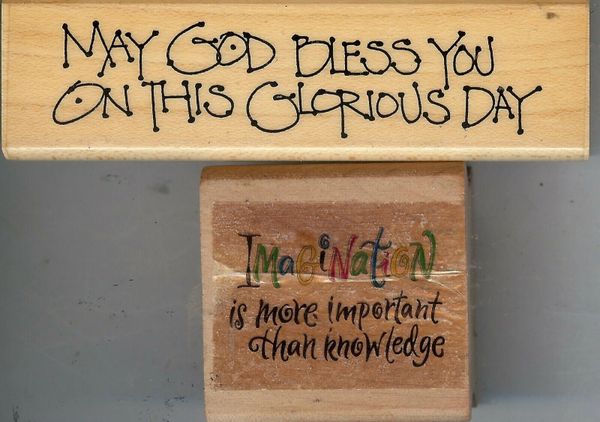 MAY GOD BLESS YOU
ON THIS GLORIOUS DAY
IMaGiNatiON
is more important
than knowledge